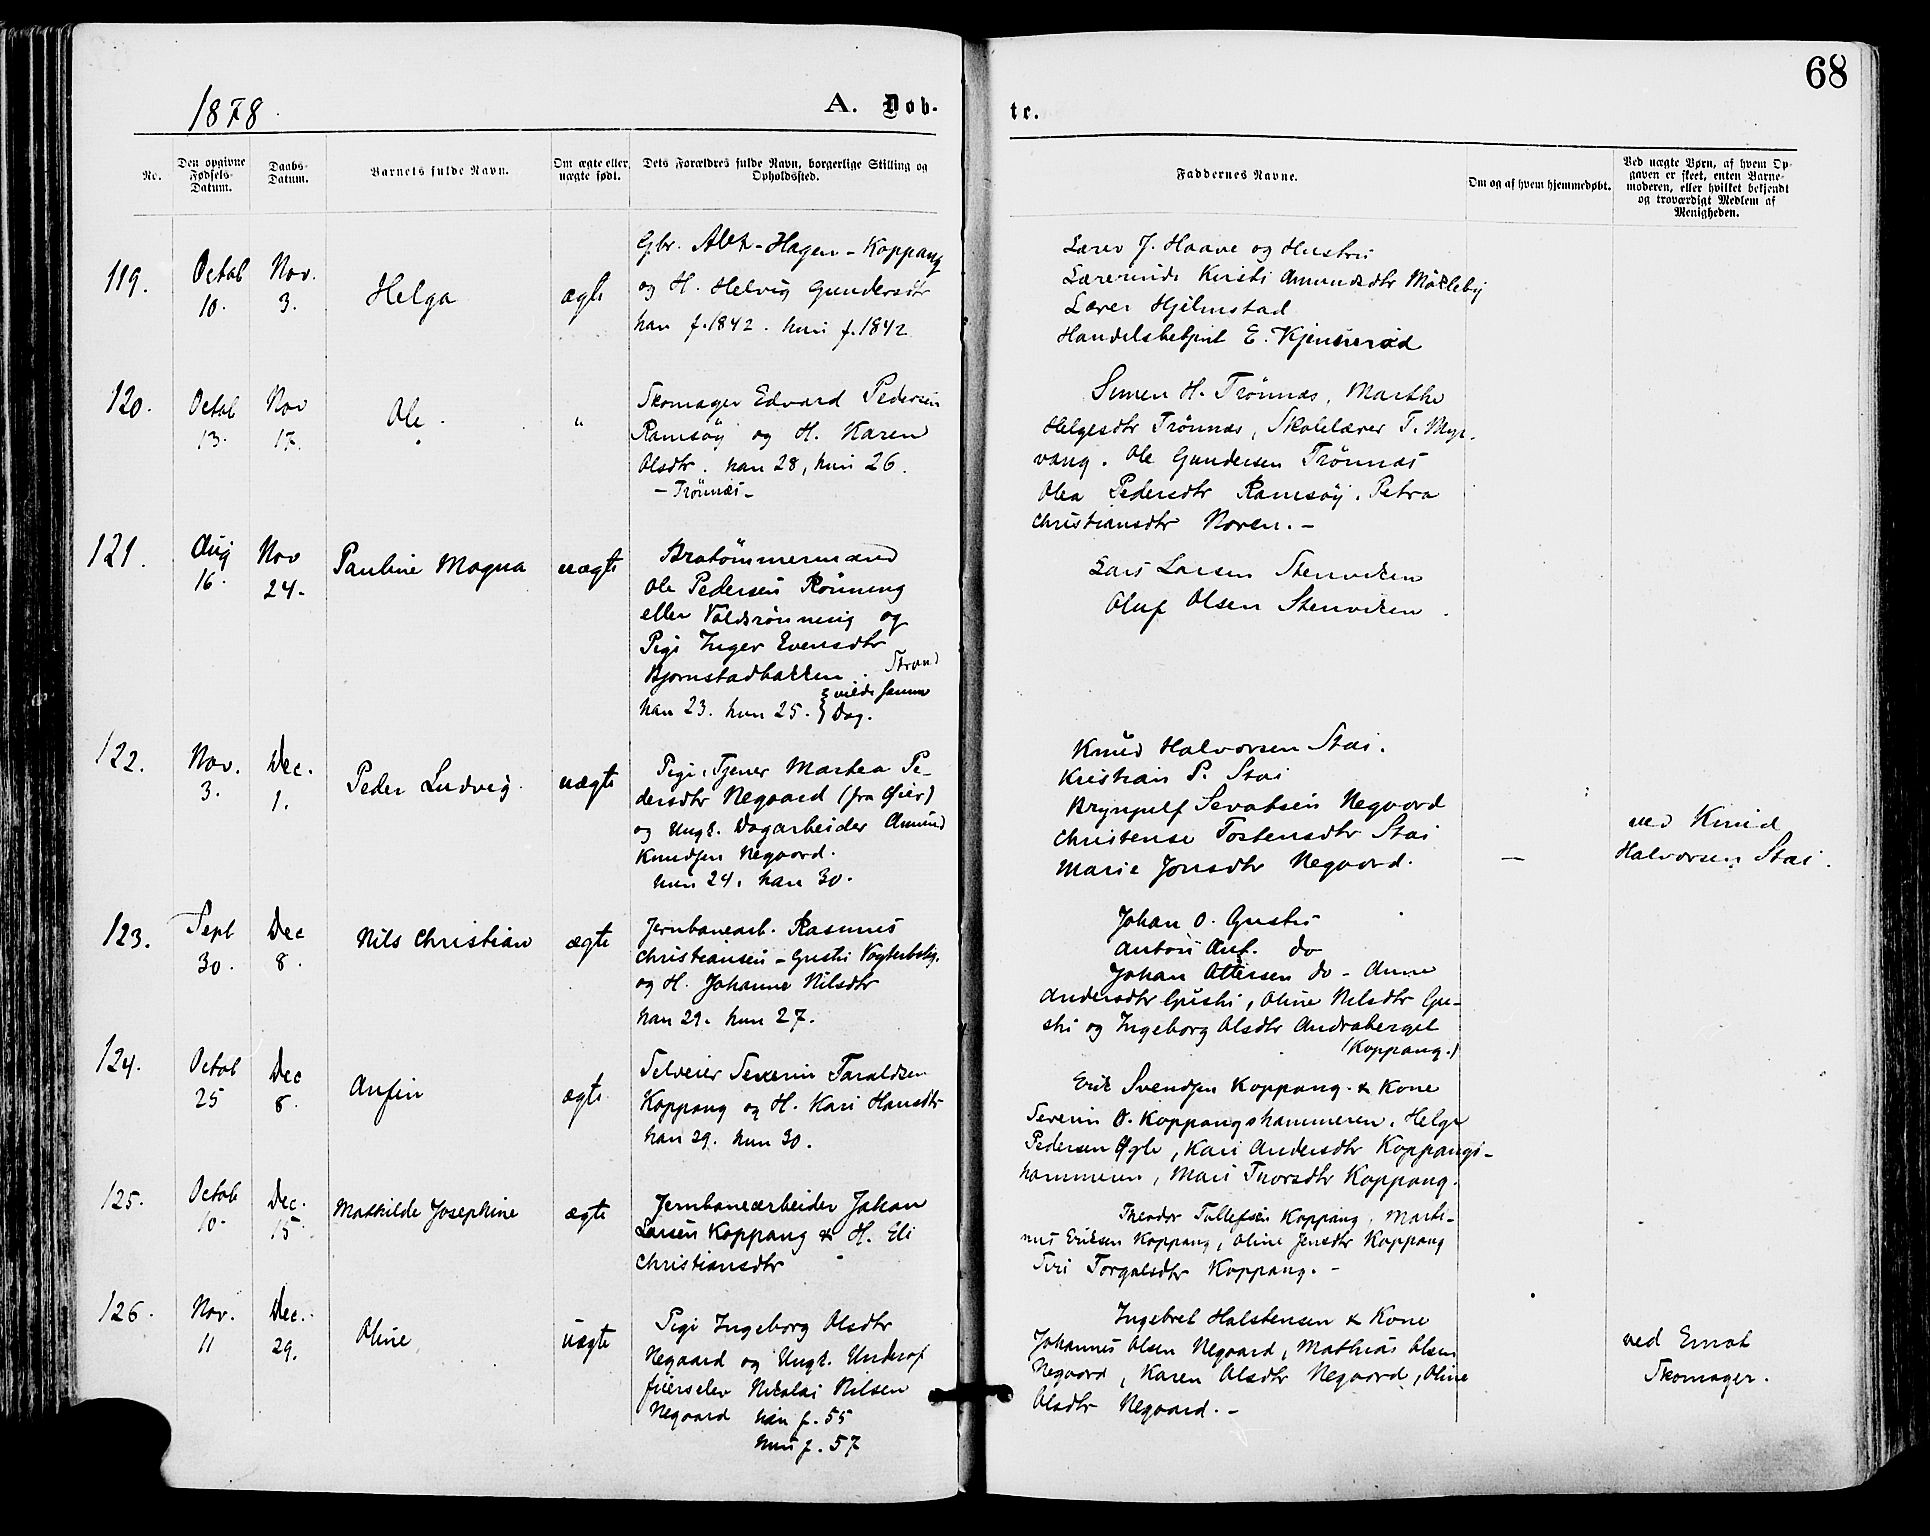 68
1878.
A. Døb-
te.
No.
Den opgivne Fødsels-Datum.
Daabs-Datum.
Barnets fulde Navn.
Om ægte eller uægte født.
Dets Forældres fulde Navn, borgerlige Stilling og Opholdssted.
Faddernes Navne.
Om og af hvem hjemmedøbt.
Ved uægte Børn, af hvem Op-
gaven er skeet, enten Barne-
moderen, eller hvilket bekjendt
og troværdigt Medlem af
Menigheden.
119.
Octob 10.
Nov. 3.
Helga
ægte
Gbr. Alex-Hagen-Koppang
og H. Helvig Gundersdtr
han f. 1842. hun f. 1842
Lærer J. Haave og Hustru
Lærerinde Kirsti Amundsdtr Mökleby
Lærer Hjelmstad
Handelsbetjent E.
120.
Octob 13.
Nov 17.
Ole.
"
Skomager Edvard Pedersen
Ramsöy og H. Karen
Olsdtr. han 28, hun 26.
- Trönnæs -
Simen H. Trönnæs, Marthe
Helgesdtr Trönnæs, Skolelærer T. Myr-
vang. Ole Gundersen Trönnæs
Olea Pedersdtr Ramsöy. Petra
Christiansdtr Noren. -
121.
Aug 16.
Nov 24.
Pauline Magna
uægte
Brotömmermand
Ole Pedersen Rönning
eller Voldsrönning og
Pige Inger Evensdtr
Bjornstadbakken. Strand
han 23. hun 25. } viede samme
Dag.
Lars Larsen Stenviken
Oluf Olsen Stenviken.
122.
Nov. 3.
Dec. 1.
Peder Ludvig.
uægte
Pige, Tjener Marthea Pe-
dersdtr Negaard (fra Øier)
og Ungk. Dagarbeider Amund
Knudsen Negaard.
hun 24. han 30.
Knud Halvorsen Stai.
Kristian P. Stai
Brynjulf Negaard
Christense Tostensdtr Stai
Marie Jonsdtr Negaard.
—
ved Knud
Halvorsen Stai.
123.
Sept 30.
Dec 8.
Nils Christian
ægte
Jernbanearb. Rasmus
Christiansen - Gusti Vogterbolig.
og H. Johanne Nilsdtr
han 29. hun 27.
Johan O. Gusti
Anton Anf. do
Johan Ottersen do - Anne
Andersdtr Gusti, Oline Nilsdtr Gu-
sti og Ingeborg Olsdtr Andraberget
(Koppang.)
124.
Octob 25
Dec 8.
Anfin
ægte
Selveier Severin Taraldsen
Koppang og H. Kari Hansdtr
han 29. hun 30.
Erik Svendsen Koppang. & Kone
Severin O. Koppangshammeren. Helge
Pedersen Øgle, Kari Andersdtr Koppangs-
hammeren, Mari Thorsdtr Koppang.
125.
Octob 10.
Dec. 15.
Mathilde Josephine
ægte
Jernbanearbeider Johan
Larsen Koppang & H. Eli
Christiansdtr
Theodor Tollefsen Koppang, Marti-
nus Eriksen Koppang, Oline Jensdtr Koppang
Siri Koppang. -
126.
Nov. 11
Dec. 29.
Oline
uægte
Pige Ingeborg Olsdtr
Negaard og Ungk. Underof
ficerselev Nikolai Nilsen
Negaard han f. 55
hun f. 57
Ingebret Halstensen & Kone
Johannes Olsen Negaard, Mathias Olsen
Negaard, Karen Olsdtr Negaard, Oline
Olsdtr Negaard. -
ved
Skomager.